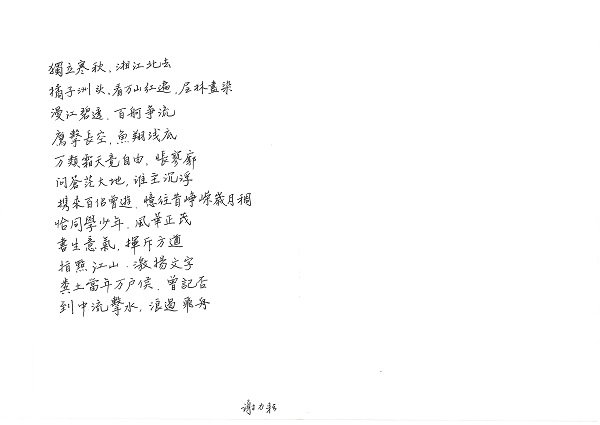 獨立寒秋，湘江北去
橘子洲头，看万山红遍，层林盡染
漫江碧透，百舸争流
鷹擊長空，魚翔浅底
万類霜天竞自由，悵寥廓
问蒼茫大地，谁主沉浮
携來百侣曾遊，憶往昔峥嵘歲月稠
恰同學少年，風華正茂
書生意氣，揮斥方遒
指點江山，激揚文字
粪土當年万户侯，曾記否
到中流擊水，浪遏飛舟
謝力